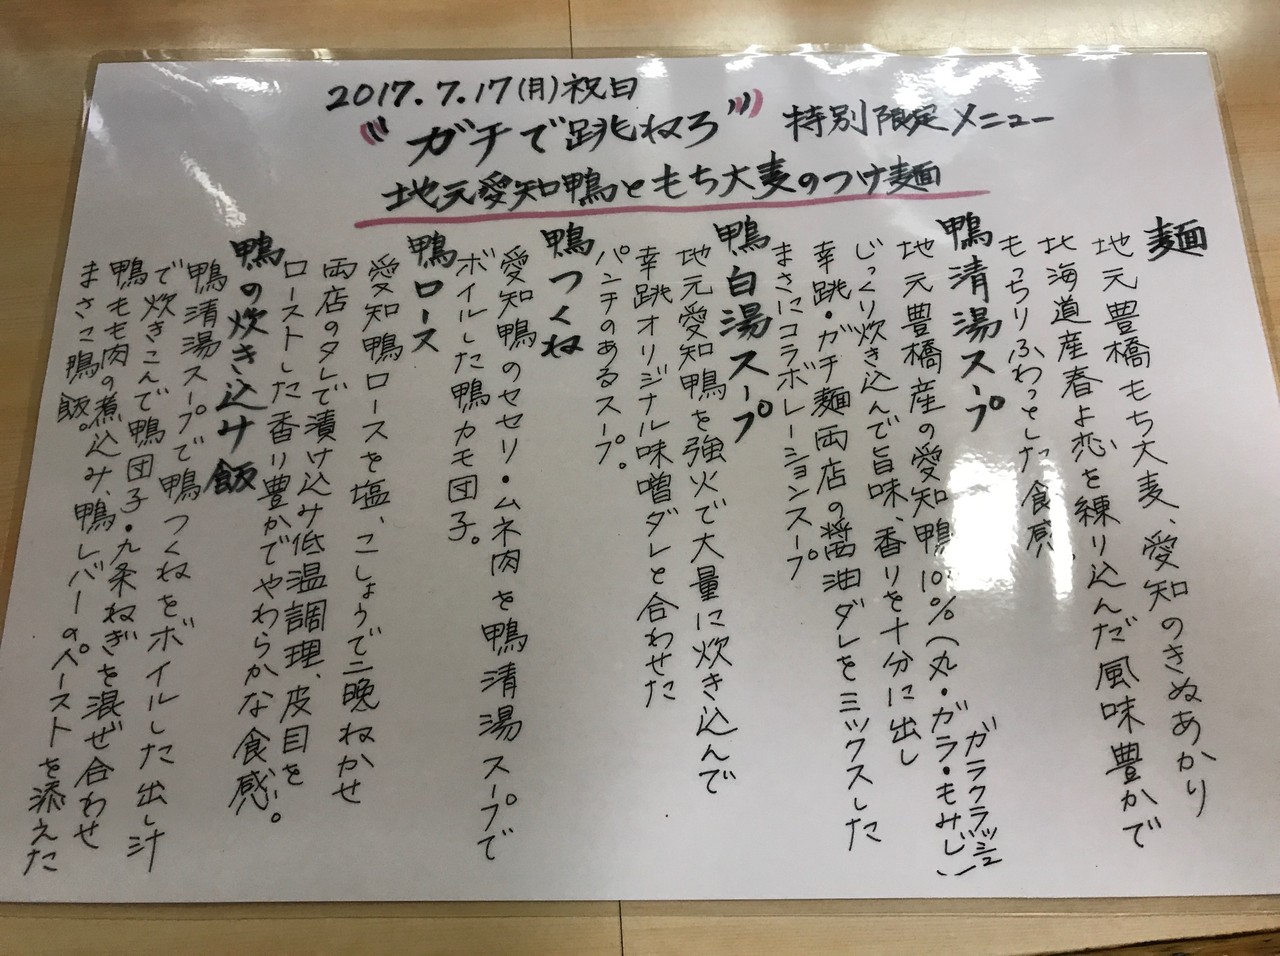 2017.7.17(月)祝日
"ガチで跳ねろ" 特別限定メニュー
地元愛知鴨ともち大麦のつけ麺
麺
地元豊橋もち大麦、愛知のきぬあかり
北海道産春よ恋を練り込んだ風味豊かで
もっちりふわっとした食感。
鴨清湯スープ
地元豊橋産の愛知鴨10%(丸・ガラ・もみじ)
ガラクラッシュ
じっくり炊き込んで旨味、香りを十分に出し
幸跳・ガチ麺両店の醤油ダレをミックスした
まさにコラボレーションスープ
鴨白湯スープ
地元愛知鴨を強火で大量に炊き込んで
幸跳オリジナル味噌ダレと合わせた
パンチのあるスープ。
鴨つくね
愛知鴨のセセリ・ムネ肉を鴨清湯スープで
ボイルした鴨カモ団子。
鴨ロース
愛知鴨ロースを塩、こしょうで二晩ねかせ
両店のタレで漬け込み低温調理、皮目を
ローストした香り豊かでやわらかな食感。
鴨の炊き込み飯
鴨清湯スープで鴨つくねをボイルした出し汁
で炊きこんで鴨団子・九条ねぎを混ぜ合わせ
鴨もも肉の煮込み、鴨レバーのペーストを添えた
まさこ鴨飯。